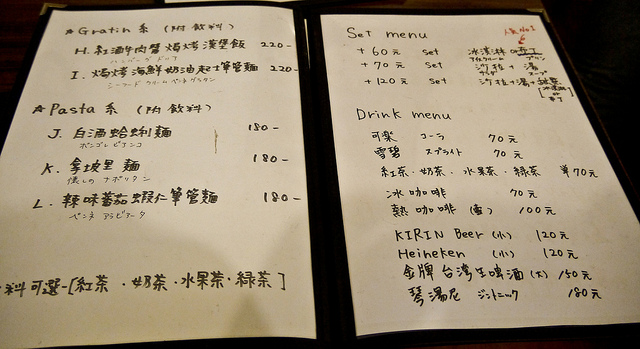 ☆Gratin 系 (附飲料)
H. 紅酒牛肉醬焗烤漢堡飯 220-
ハンバーグドリア
I. 焗烤海鮮奶油起士筆管麵 220-
シーフードクリームペンネグラタン
☆Pasta 系 (附飲料)
J. 白酒蛤蜊麵 180-
ボンゴレビアンコ
K. 拿坡里麵 180-
懐しのナポリタン
L. 辣味蕃茄蝦仁筆管麵 180-
ペンネアラビアータ
料可選-[紅茶・奶茶・水果茶・緑茶]
Set menu
人気No.1
+60元 Set 冰淇淋 or 布丁
アイスクリーム プリン
+70元 Set 沙拉+湯
サラダ スープ
+120元 Set 沙拉+湯+甜點
[冰淇淋 or 布丁]
Drink menu
可樂 コーラ 70元
雪碧 スプライト 70元
紅茶・奶茶・水果茶・緑茶 70元
冰咖啡 70元
熱咖啡 100元
KIRIN Beer (小) 120元
Heineken (小) 120元
金牌台湾生啤酒 (大) 150元
琴湯尼 ジントニック 180元